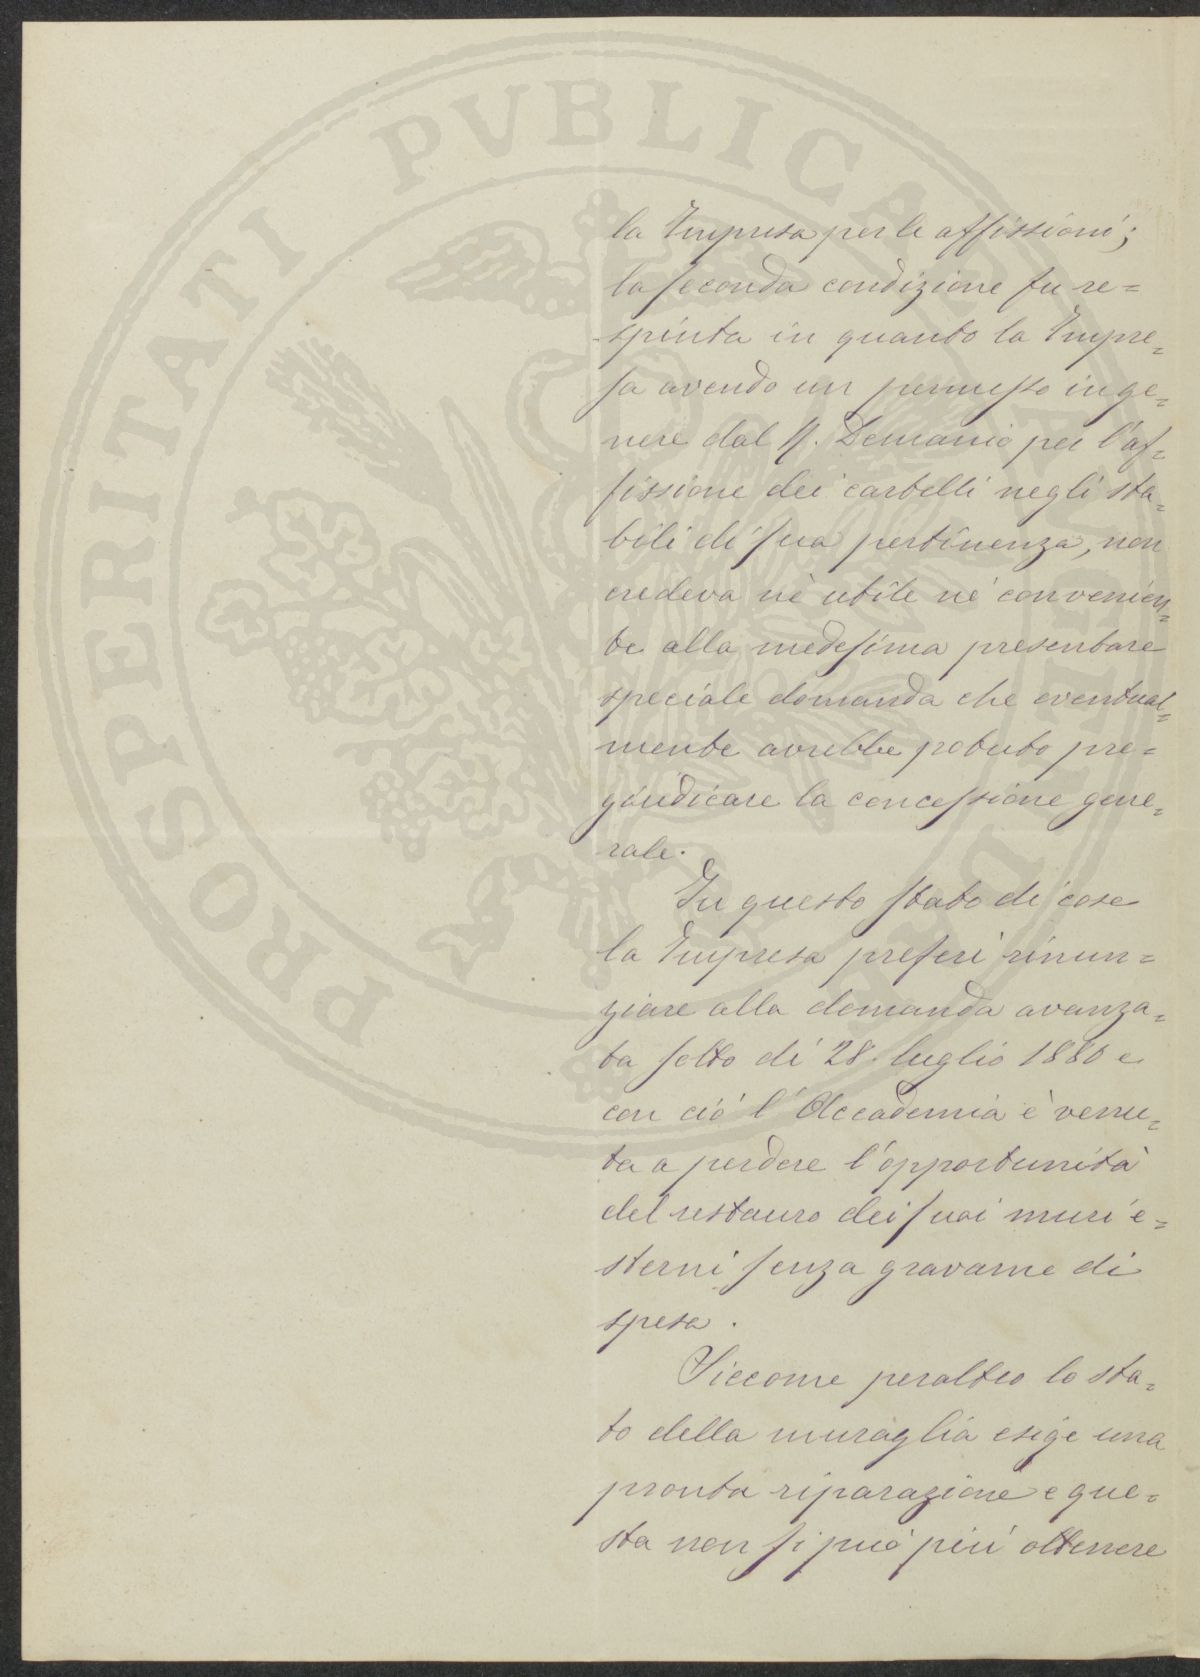 PROSPERITATI PVBLICAE
la Impresa per le affissioni;
la seconda condizione fu re=
spinta in quanto la Impre=
sa avendo un permesso in ge=
nere dal R. Demanio per l'af=
fissione dei cartelli negli sta=
bili di sua pertinenza, non
credeva nè utile nè convenien=
te alla medesima presentare
speciale domanda che eventual=
mente avrebbe potuto pre=
giudicare la concessione gene=
rale.
In questo stato di cose
la Impresa preferì rinun=
ziare alla domanda avanza=
ta sotto dì 28 luglio 1880 e
con ciò l'Accademia è venu=
ta a perdere l'opportunità
del restauro dei suoi muri e=
sterni senza gravame di
spesa.
Siccome peraltro lo sta=
to della muraglia esige una
pronta riparazione e que=
sta non si può più ottenere